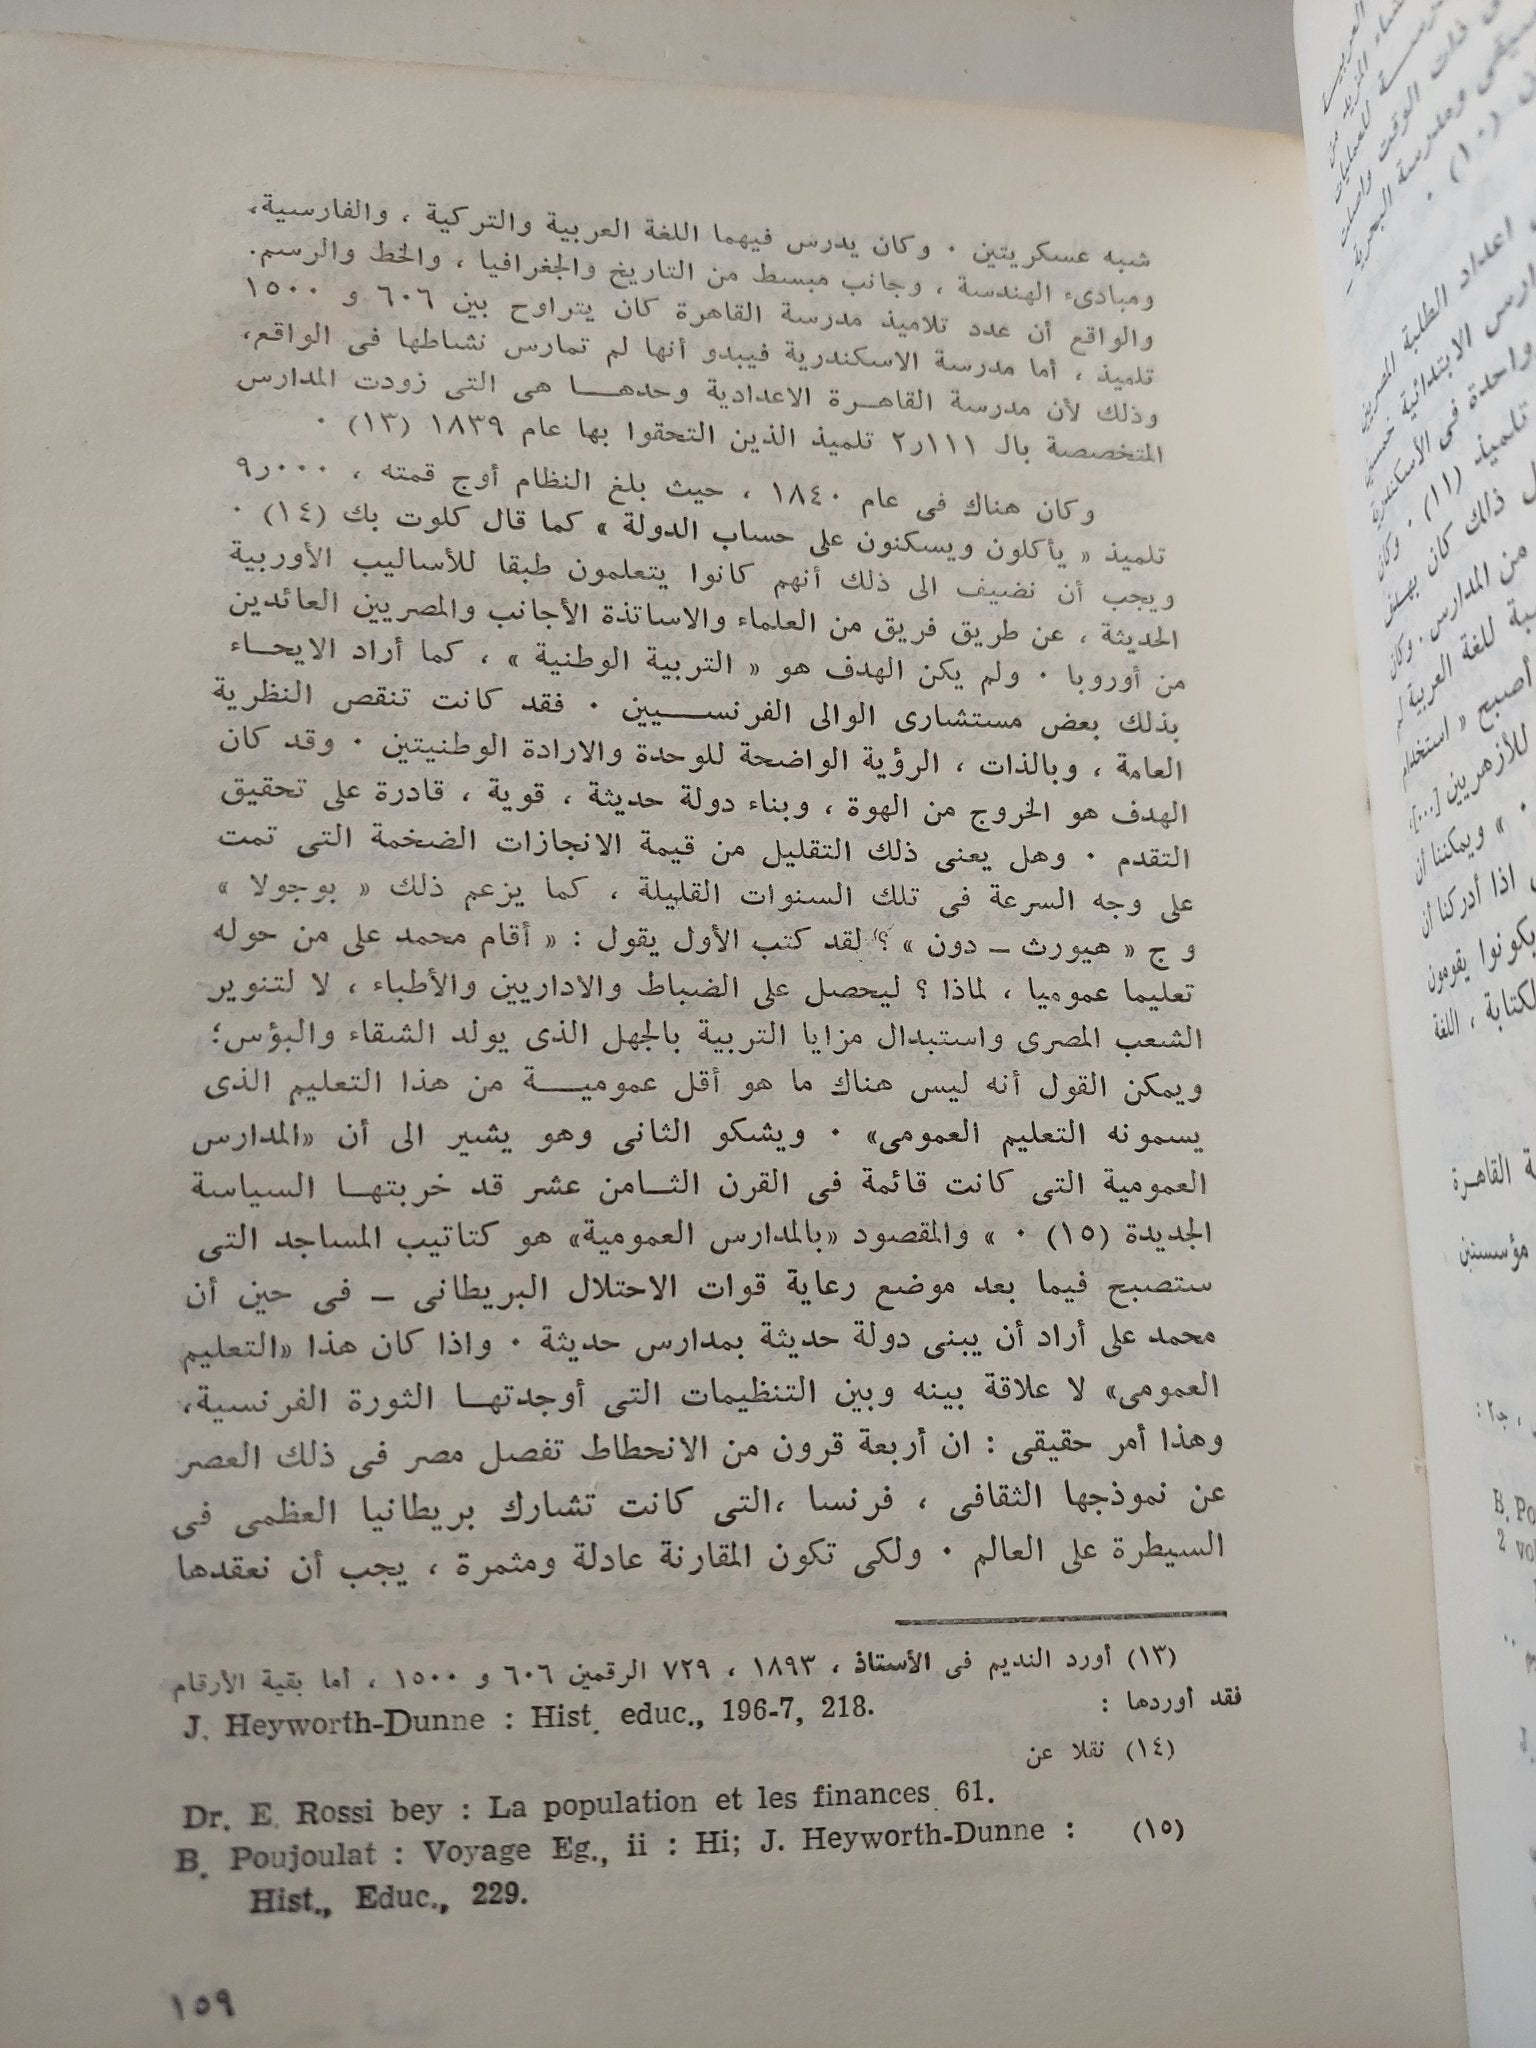 شبه عسكريتين ٠ وكان يدرس فيهما اللغة العربية والتركية ، والفارسية،
ومبادىء الهندسة ، وجانب مبسط من التاريخ والجغرافيا ، والخط والرسم.
والواقع أن عدد تلاميذ مدرسة القاهرة كان يتراوح بين ٦٠٦ و ١٥٠٠
تلميذ ، أما مدرسة الاسكندرية فيبدو أنها لم تمارس نشاطها فى الواقع،
وذلك لأن مدرسة القاهــرة الاعدادية وحدهــــا هى التى زودت المدارس
المتخصصة بالـ ٢٫١١١ تلميذ الذين التحقوا بها عام ١٨٣٩ (١٣) ٠
وكان هناك فى عام ١٨٤٠ ، حيث بلغ النظام أوج قمته ، ٩٫٠٠٠
تلميذ « يأكلون ويسكنون على حساب الدولة » كما قال كلوت بك (١٤) ٠
ويجب أن نضيف الى ذلك أنهم كانوا يتعلمون طبقا للأساليب الأوربية
الحديثة ، عن طريق فريق من العلماء والاساتذة الأجانب والمصريين العائدين
من أوروبا ٠ ولم يكن الهدف هو « التربية الوطنية » ، كما أراد الايحــاء
بذلك بعض مستشارى الوالى الفرنســـــيين ٠ فقد كانت تنقص النظرية
العامة ، وبالذات ، الرؤية الواضحة للوحدة والارادة الوطنيتين ٠ وقد كان
الهدف هو الخروج من الهوة ، وبناء دولة حديثة ، قوية ، قادرة على تحقيق
التقدم ٠ وهل يعنى ذلك التقليل من قيمة الانجازات الضخمة التى تمت
على وجه السرعة فى تلك السنوات القليلة ، كما يزعم ذلك « بوجولا »
و ج « هيورث – دون » ؟ لقد كتب الأول يقول : « أقام محمد على من حوله
تعليما عموميا ، لماذا ؟ ليحصل على الضباط والاداريين والأطباء ، لا لتنوير
الشعب المصرى واستبدال مزايا التربية بالجهل الذى يولد الشقاء والبؤس؛
ويمكن القول أنه ليس هناك ما هو أقل عموميـــــة من هذا التعليم الذى
يسمونه التعليم العمومى» ٠ ويشكو الثانى وهو يشير الى أن «المدارس
العمومية التى كانت قائمة فى القرن الثــامن عشر قد خربتهــا السياسة
الجديدة (١٥) ٠ » والمقصود «بالمدارس العمومية» هو كتاتيب المساجد التى
ستصبح فيما بعد موضع رعاية قوات الاحتلال البريطانى – فى حين أن
محمد على أراد أن يبنى دولة حديثة بمدارس حديثة ٠ واذا كان هذا «التعليم
العمومى» لا علاقة بينه وبين التنظيمات التى أوجدتهــا الثورة الفرنسية،
وهذا أمر حقيقى : ان أربعة قرون من الانحطاط تفصل مصر فى ذلك العصر
عن نموذجها الثقافى ، فرنسا ،التى كانت تشارك بريطانيا العظمى فى
السيطرة على العالم ٠ ولكى تكون المقارنة عادلة ومثمرة ، يجب أن نعقدها
(١٣) أورد النديم فى الأستاذ ، ١٨٩٣ ، ٧٢٩ الرقمين ٦٠٦ و ١٥٠٠ ، أما بقية الأرقام
فقد أوردها : J. Heyworth-Dunne : Hist. educ., 196-7, 218.
(١٤) نقلا عن
Dr. E. Rossi bey : La population et les finances 61.
(١٥) B. Poujoulat : Voyage Eg., ii : Hi; J. Heyworth-Dunne :
Hist., Educ., 229.
١٥٩
العربيــة
(١٠) ٠
اعداد الطلبة المصريين
الابتدائية خمسين
واحدة فى الأسكندرية
تلميذ (١١) ٠ وكان
ذلك كان بهدف
من المدارس ٠ وكان
للغة العربية لم
أصبح « استخدام
للأزهريين [...]،
٠ » ويمكننا أن
اذا أدركنا أن
يكونوا يقومون
لكتابة ، اللغة
القاهـرة
مؤسستين
، جـ٢ :
B. Po
2 vol